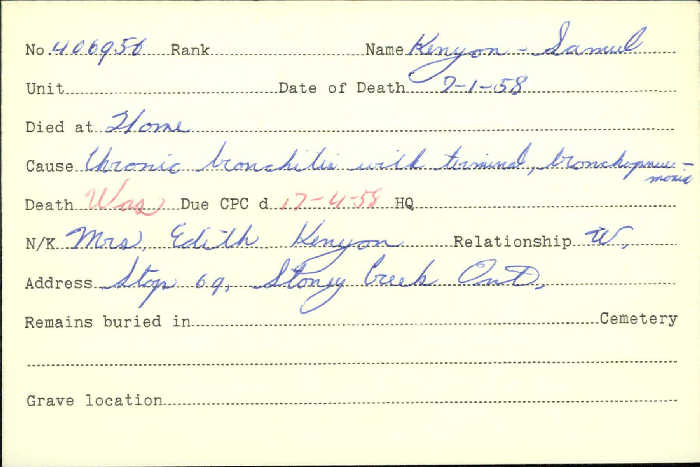 No. 406956 Rank Name Kenyon - Samuel
Unit Date of Death 7-1-58
Died at Home
Cause Chronic bronchitis with terminal, bronchopneu-
monia
Death Was Due CPC d 17-4-58 HQ
N/K Mrs. Edith Kenyon Relationship W.
Address Stop 69, Stoney Creek Ont.
Remains buried in Cemetery
Grave location